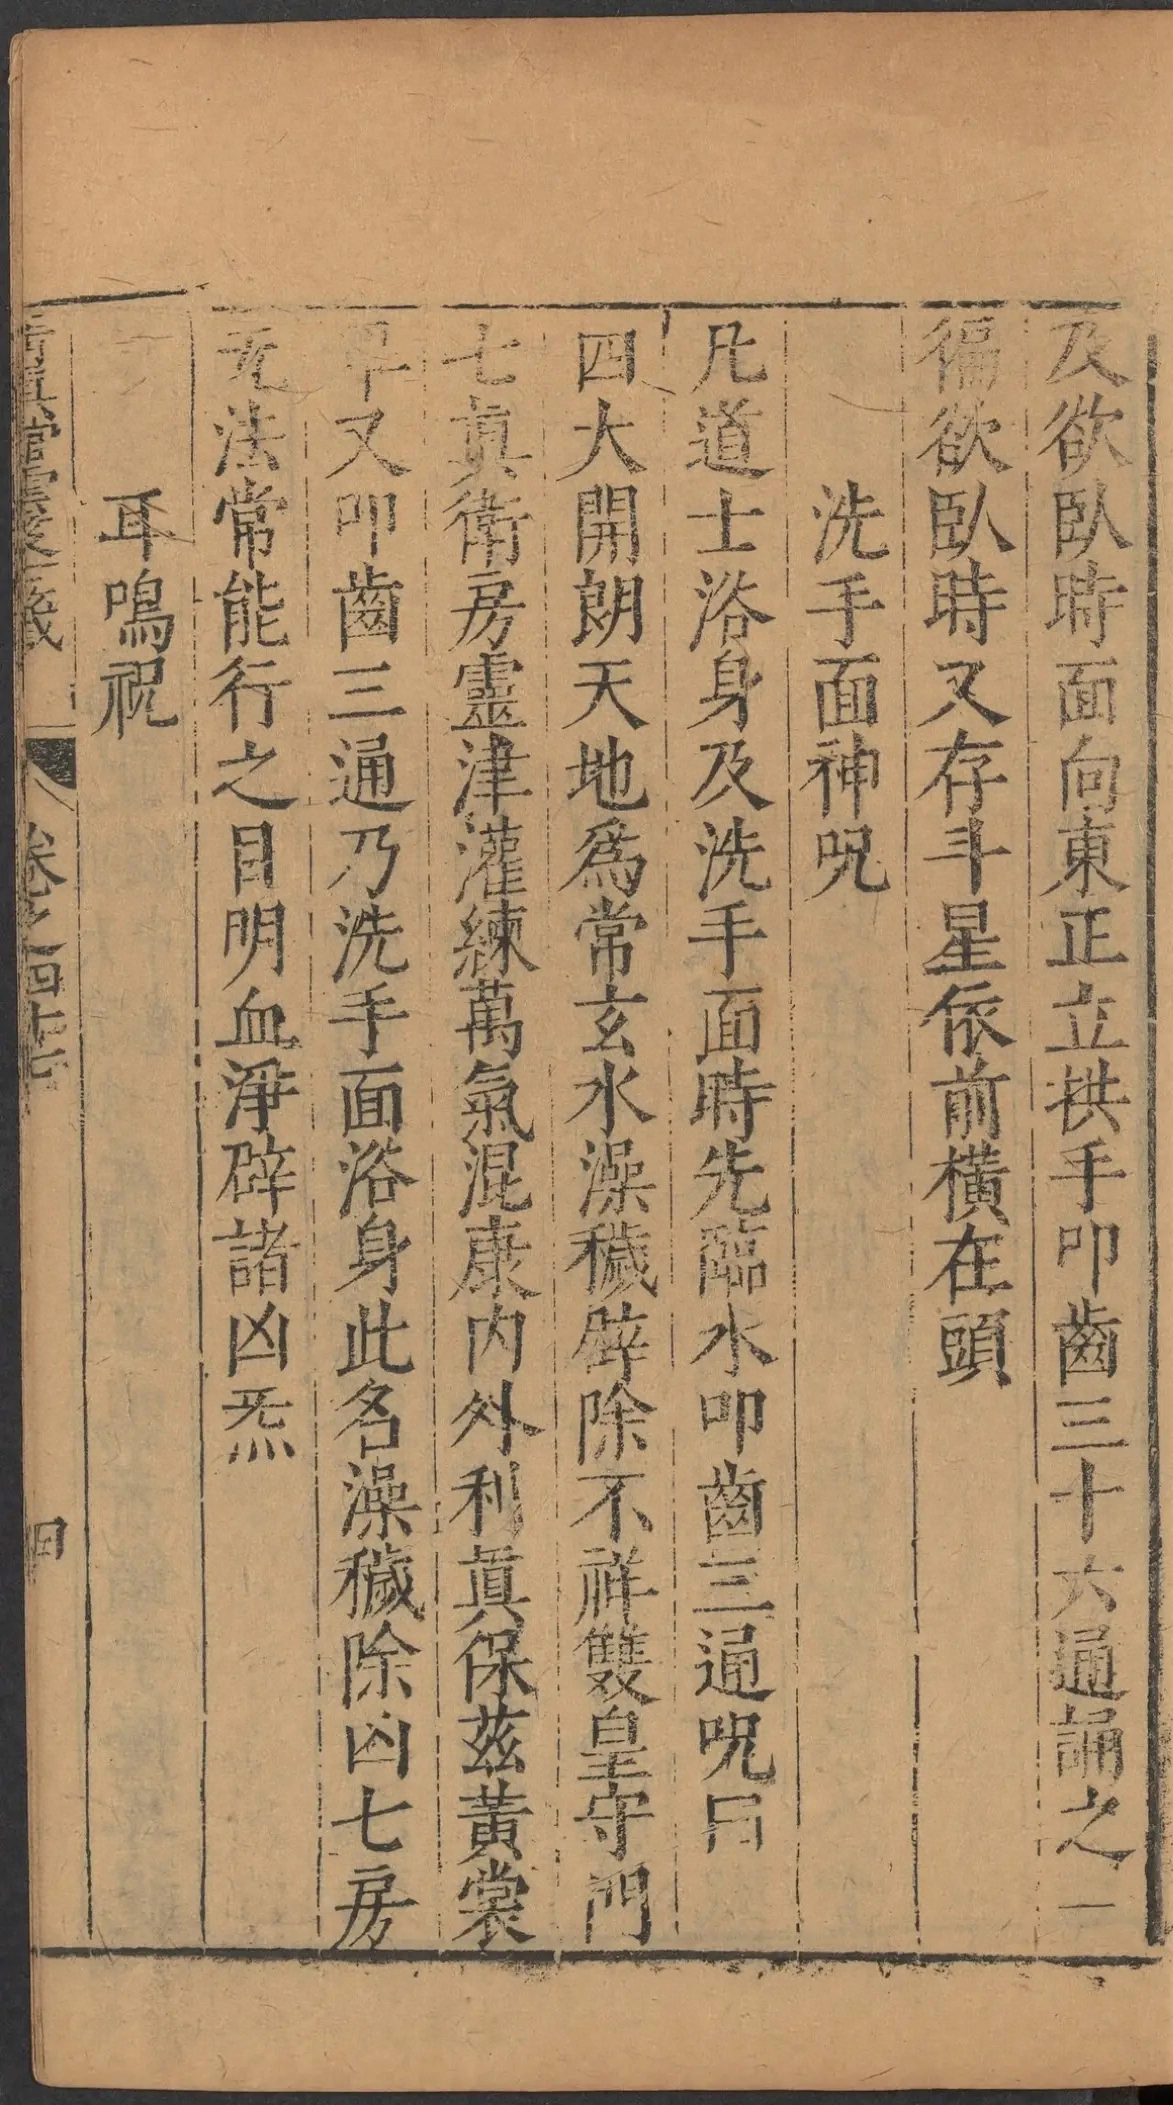 及欲臥時面向東正立拱手叩齒三十六通誦之一
徧欲臥時又存斗星依前橫在頭
洗手面神呪
凡道士浴身及洗手面時先臨水叩齒三通呪曰
四大開朗天地爲常玄水澡穢辟除不祥雙皇守門
七眞衛房靈津灌練萬氣混康内外利眞保茲黃裳
畢又叩齒三通乃洗手面浴身此名澡穢除凶七房
无法常能行之目明血淨辟諸凶炁
耳鳴祝
卷之四十七
四